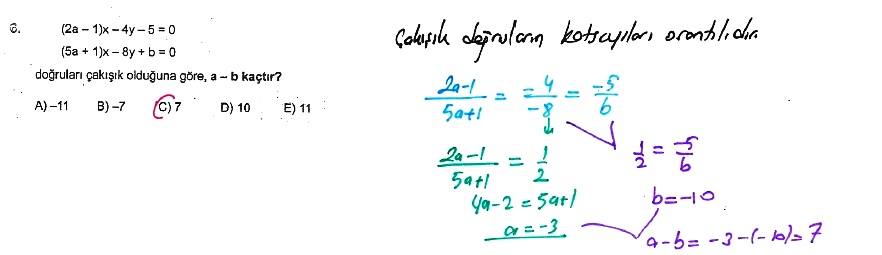 6. (2a – 1)x – 4y – 5 = 0
(5a + 1)x – 8y + b = 0
doğruları çakışık olduğuna göre, a – b kaçtır?
A) –11 B) –7 C) 7 D) 10 E) 11
Çakışık doğruların katsayıları orantılıdır
(2a-1)/(5a+1) = -4/-8 = -5/b
(2a-1)/(5a+1) = 1/2
4a-2 = 5a+1
a = -3
1/2 = -5/b
b = -10
a-b = -3-(-10) = 7